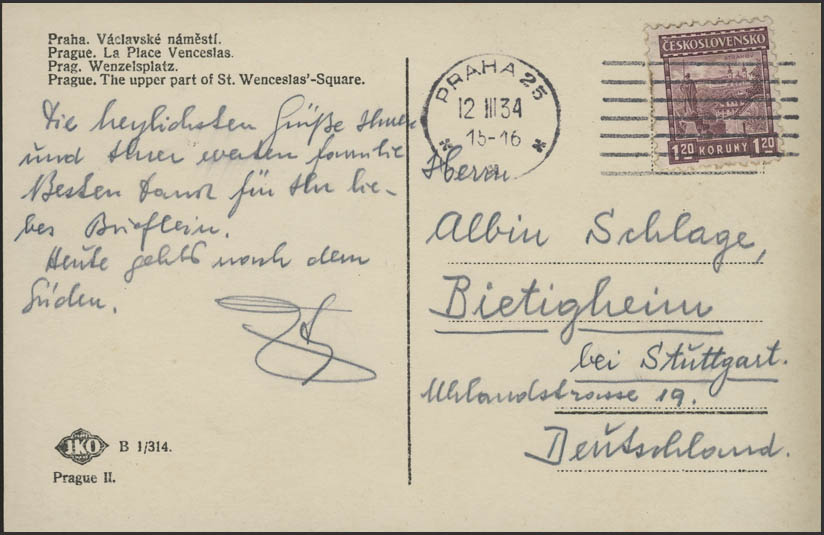 Praha. Václavské náměstí.
Prague. La Place Venceslas.
Prag. Wenzelsplatz.
Prague. The upper part of St. Wenceslas'-Square.
Die herzlichsten Grüße Ihnen
und Ihrer werten Familie
Besten Dank für Ihr lie-
bes Brieflein.
Heute gehts nach dem
Süden.
IKO
B 1/314.
Prague II.
PRAHA 25
12 III 34
15-16
ČESKOSLOVENSKO
1·20 KORUNY 1·20
Herrn
Albin Schlage,
Bietigheim
bei Stuttgart.
Uhlandstrasse 19.
Deutschland.